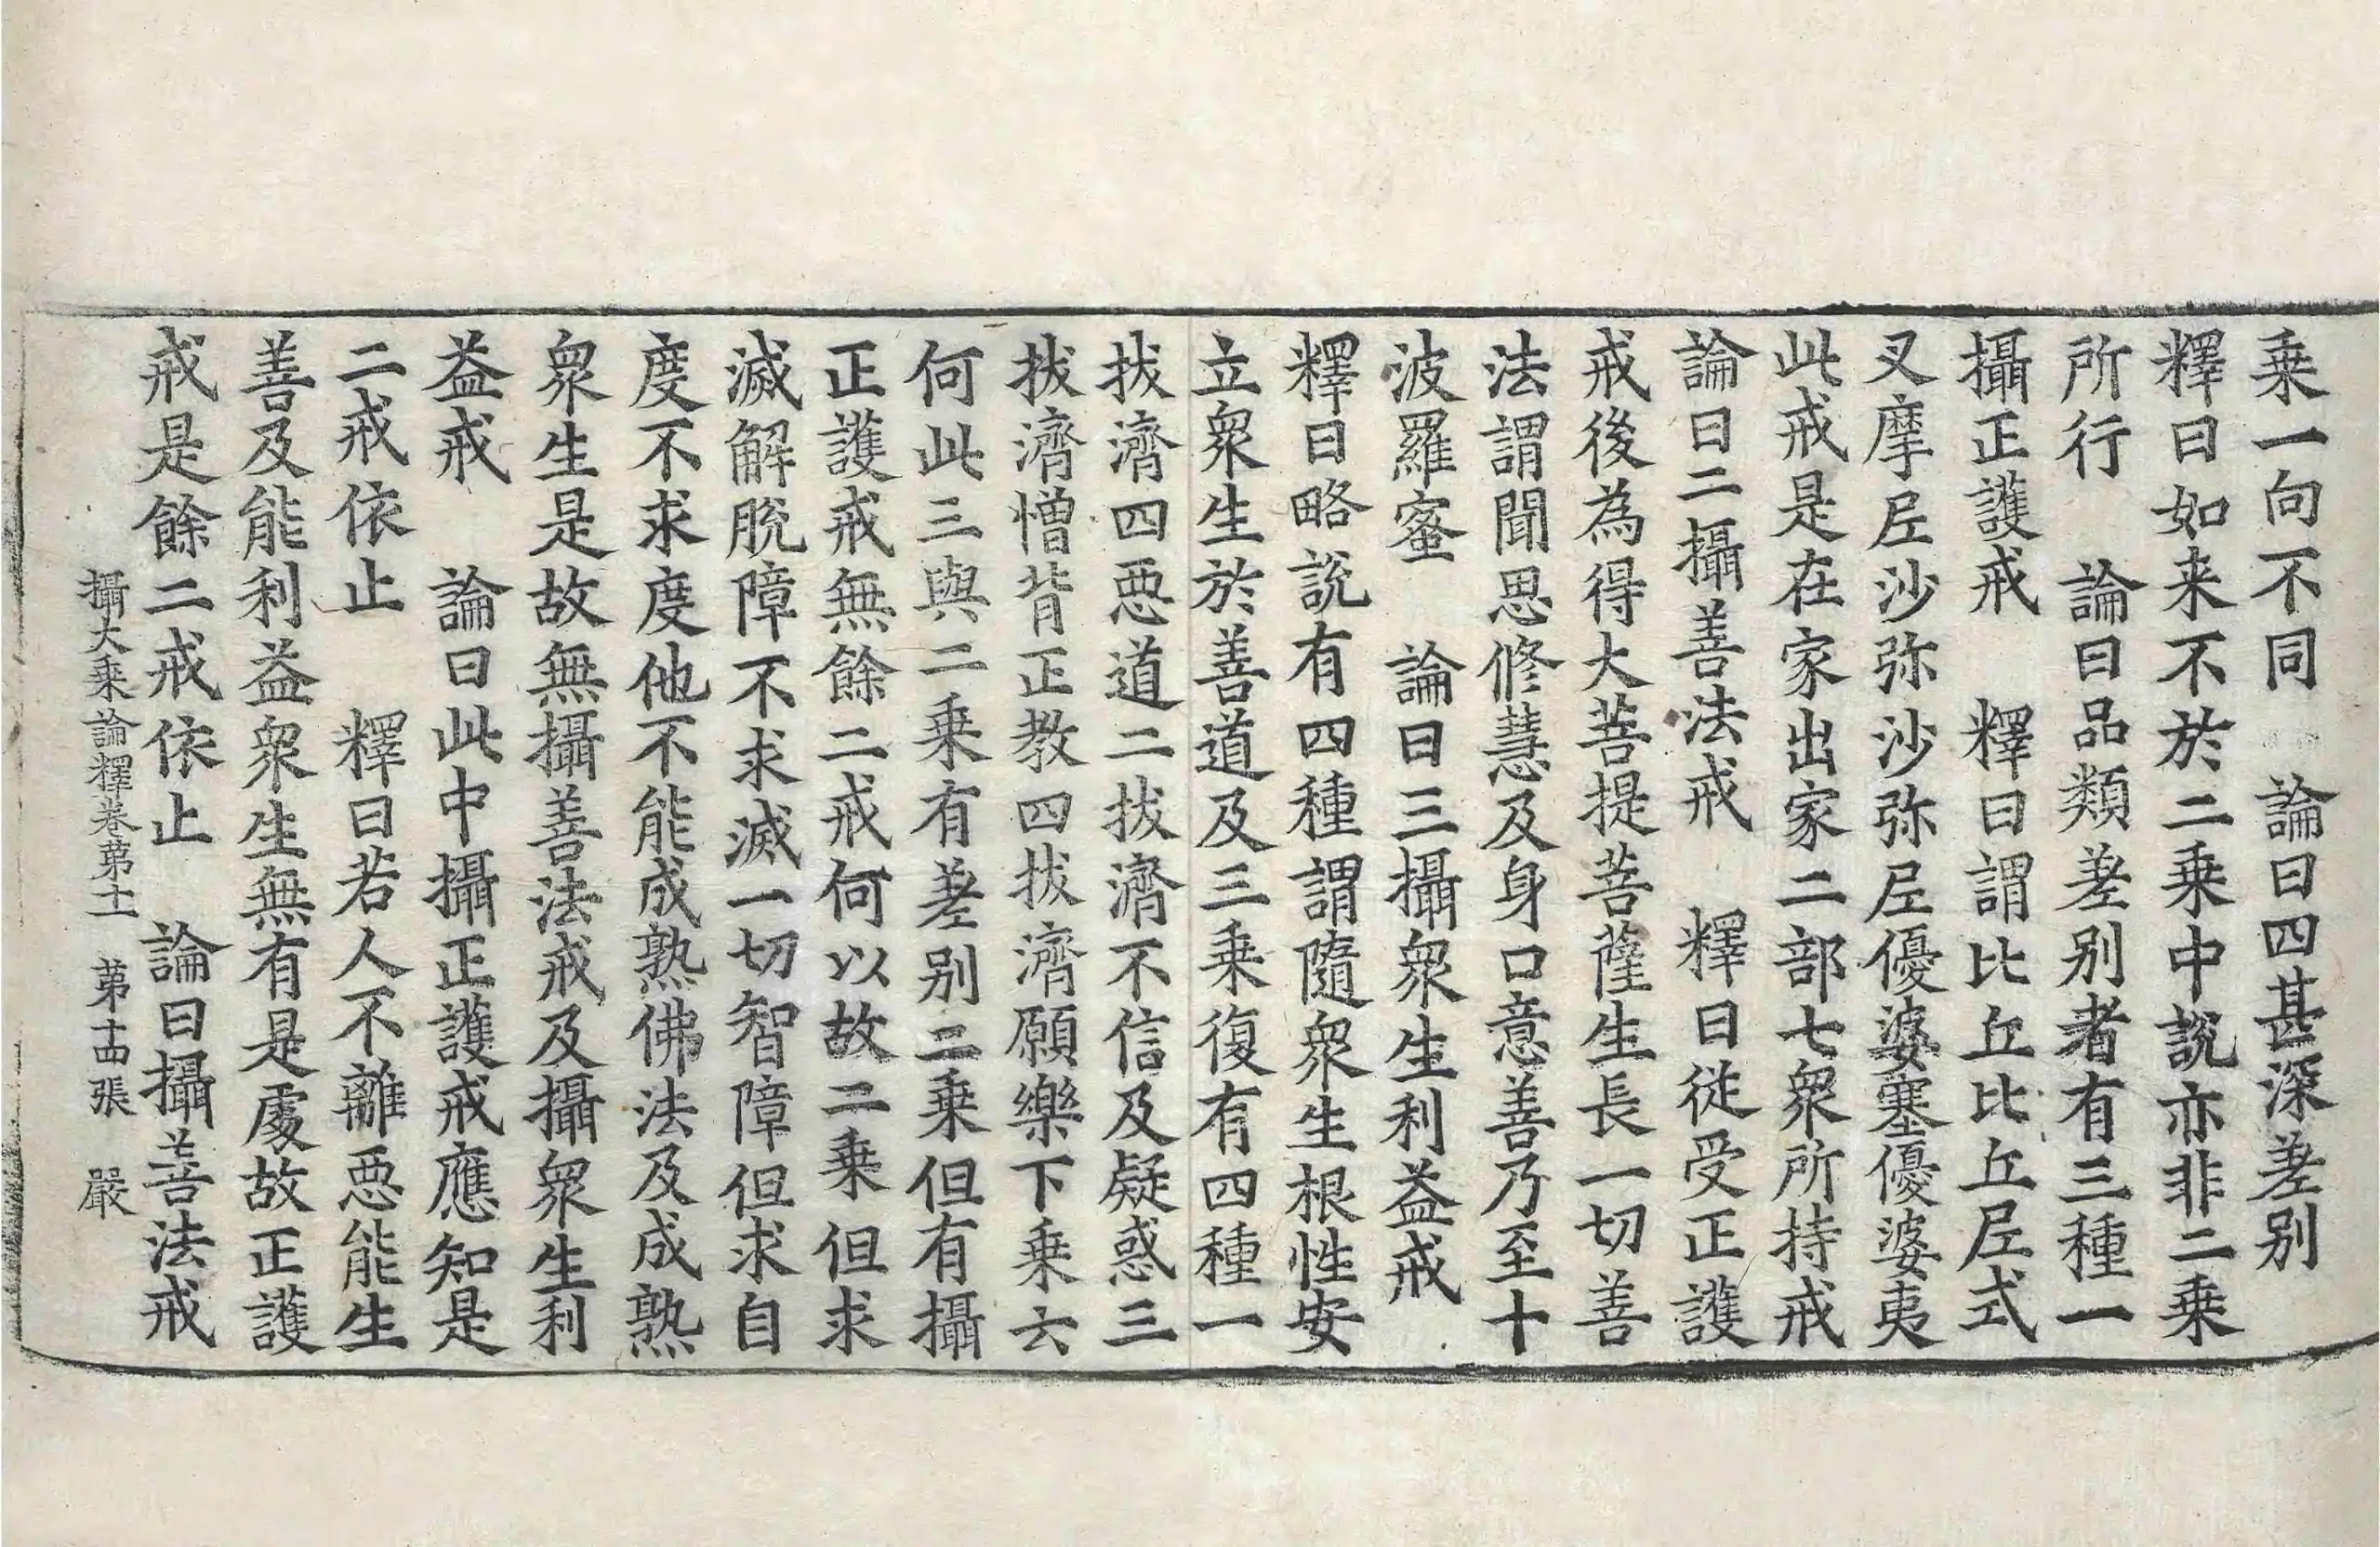 乗一向不同　論曰四甚深差别
釋曰如来不於二乗中説亦非二乗
所行　論曰品類差别者有三種一
攝正護戒　釋曰謂比丘比丘𡰱式
叉摩𡰱沙弥沙弥𡰱優婆塞優婆夷
此戒是在家出家二部七衆所持戒
論曰二攝善法戒　釋曰従受正護
戒後為得大菩提菩薩生長一切善
法謂聞思修慧及身口意善乃至十
波羅蜜　論曰三攝衆生利益戒
釋曰略説有四種謂隨衆生根性安
立衆生於善道及三乗復有四種一
拔濟四惡道二拔濟不信及疑惑三
拔濟憎背正教四拔濟願樂下乗六
何此三與二乗有差别二乗但有攝
正護戒無餘二戒何以故二乗但求
滅解脫障不求滅一切智障但求自
度不求度他不能成熟佛法及成熟
衆生是故無攝善法戒及攝衆生利
益戒　論曰此中攝正護戒應知是
二戒依止　釋曰若人不離惡能生
善及能利益衆生無有是處故正護
戒是餘二戒依止　論曰攝善法戒
攝大乗論釋卷第十一　第十四張　嚴